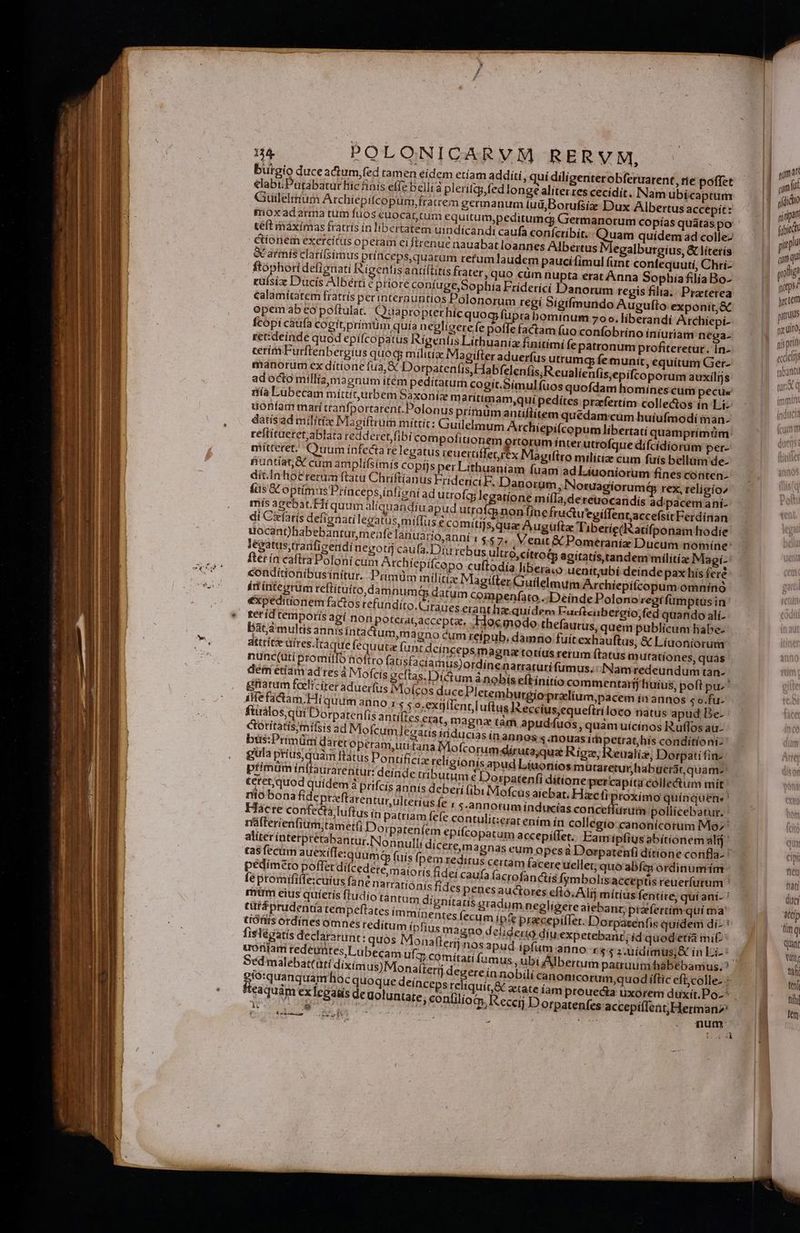 114 POLONICARVM RERVM,
burgio duce actum, sed tamen eidem etiam additi, qui diligenter obseruarent, ne posset
elabi. Putabatur hic finis esse belli à plerisq;, sed longe aliter res cecidit. Nam ubi captum
Guilelmum Archiepiscopum, fratrem germanum suũ, Borussiæ Dux Albertus accepit:
mox ad arma tum suos euocat, tum equitum, peditumq; Germanorum copias quátas po
test maximas fratris in libertatem uindicandi causa conscribit. Quam quidem ad colle-
ctionem exercitus operam ei strenue nauabat Ioannes Albertus Megalburgius, & literis
& armis clarissimus princeps, quarum rerum laudem pauci simul sunt consequuti, Chri-
stophori designati Rigensis antistitis frater, quo cùm nupta erat Anna Sophia filia Bo-
russiæ Ducis Alberti è priore coniuge, Sophia Friderici Danorum regis filia. Præterea
calamitatem fratris per internuntios Polonorum regi Sigismundo Augusto exponit, &
opem ab eo postulat. Quapropter hic quoq; supra hominum 700. liberandi Archiepi-
scopi causa cogit, primùm quia negligere se posse factam suo consobrino iniuriam nega-
ret: deinde quod episcopatus Rigensis Lithuaniæ finitimi se patronum profiteretur. In-
terim Furstenbergius quoq; militiæ Magister aduersus utrumq; se munit, equitum Ger-
manorum ex ditione sua, & Dorpatensis, Habselensis, Reualiensis, episcoporum auxilijs
ad octo millia, magnum item peditatum cogit. Simul suos quosdam homines cum pecu-
nia Lubecam mittit, urbem Saxoniæ maritimam, qui pedites præsertim collectos in Li-
uoniam mari transportarent. Polonus primùm antistitem quædam cum huiusmodi man-
datis ad militiæ Magistrum mittit: Guilelmum Archiepiscopum libertati quamprimùm
restitueret, ablata redderet, sibi compositionem ortorum inter utrosque discidiorum per-
mitteret. Quum infecta re legatus reuertisset, rex Magistro militiæ cum suis bellum de-
nuntiat, & cum amplissimis copijs per Lithuaniam suam ad Liuoniorum fines conten-
dit. In hoc rerum statu Christianus Friderici F. Danorum, Noruagiorumq; rex, religio-
sus & optimus Princeps, insigni ad utrosq; legatione missa, de reuocandis ad pacem ani-
mis agebat. Hi quum aliquandiu apud utrosq; non sine fructu egissent, accessit Ferdinan
di Cæsaris designati legatus, missus è comitijs, quæ Augustæ Tiberię (Ratisponam hodie
uocant) habebantur, mense Ianuario, anni 1557. Venit & Pomeraniæ Ducum nomine
legatus, transigendi negotij causa. Diu rebus ultrò, citroq; agitatis, tandem militiæ Magi-
ster in castra Poloni cum Archiepiscopo custodia liberato uenit, ubi deinde pax his ferè
conditionibus initur. Primùm militiæ Magister Guilelmum Archiepiscopum omnino
in integrum restituito, damnumq; datum compensato. Deinde Polono regi sumptus in
expeditionem factos refundito. Graues erant hæ quidem Furstenbergio, sed quando ali-
ter id temporis agi non poterat, acceptæ. Hoc modo thesaurus, quem publicum habe-
bat, à multis annis intactum, magno cum reipub. damno fuit exhaustus, & Liuoniorum
attritæ uires. Itaque sequutæ sunt deinceps magnæ totius rerum status mutationes, quas
nunc (uti promisso nostro satisfaciamus) ordine narraturi sumus. Nam redeundum tan-
dem etiam ad res à Moscis gestas. Dictum à nobis est initio commentarij huius, post pu-
gnatum fœliciter aduersus Moscos duce Pletemburgio prælium, pacem in annos 50. fu-
isse factam. Hi quum anno 1550. exijssent, Iustus Reccius, equestri loco natus apud Be-
stualos, qui Dorpatensis antistes erat, magnæ tàm apud suos, quàm uicinos Russos au-
ctoritatis, missis ad Moscum legatis inducias in annos 5. nouas impetrat, his conditioni-
bus: Primùm daret operam, uti fana Moscorum diruta, quæ Rigæ, Reualiæ, Dorpati sin-
gula prius, quàm status Pontificiæ religionis apud Liuonios mutaretur, habuerãt, quam-
primùm instaurarentur: deinde tributum è Dorpatensi ditione per capita collectum mit
teret, quod quidem à priscis annis deberi sibi Moscus aiebat. Hæc si proximo quinquen-
nio bona fide præstarentur, ulterius se 15. annorum inducias concessurum pollicebatur.
Hac re confecta, Iustus in patriam sese contulit: erat enim in collegio canonicorum Mo-
nasteriensium, tametsi Dorpatensem episcopatum accepisset. Eam ipsius abitionem alij
aliter interpretabantur. Nonnulli dicere, magnas eum opes à Dorpatensi ditione confla-
tas secum auexisse: quumq; suis spem reditus certam facere uellet, quo absq; ordinum im-
pedimento posset discedere, maioris fidei causa sacrosanctis symbolis acceptis reuersurum
se promisisse: cuius sanè narrationis fides penes auctores esto. Alij mitius sentire, qui ani-
mum eius quietis studio tantum dignitatis gradum negligere aiebant, præsertim qui ma
tura prudentia tempestates imminentes secum ipse præcepisset. Dorpatensis quidem di-
tionis ordines omnes reditum ipsius magno desiderio diu expetebant, id quod etiã mis-
sis legatis declararunt: quos Monasterij nos apud ipsum anno 1552. uidimus, & in Li-
uoniam redeuntes, Lubecam usq; comitati sumus, ubi Albertum patruum habebamus.
Sed malebat (uti diximus) Monasterij degere in nobili canonicorum, quod istic est, colle-
gio: quanquam hoc quoque deinceps reliquit, & ætate iam prouecta uxorem duxit. Po-
steaquàm ex legatis de uoluntate, consilioq; Reccij Dorpatenses accepissent, Herman-
num